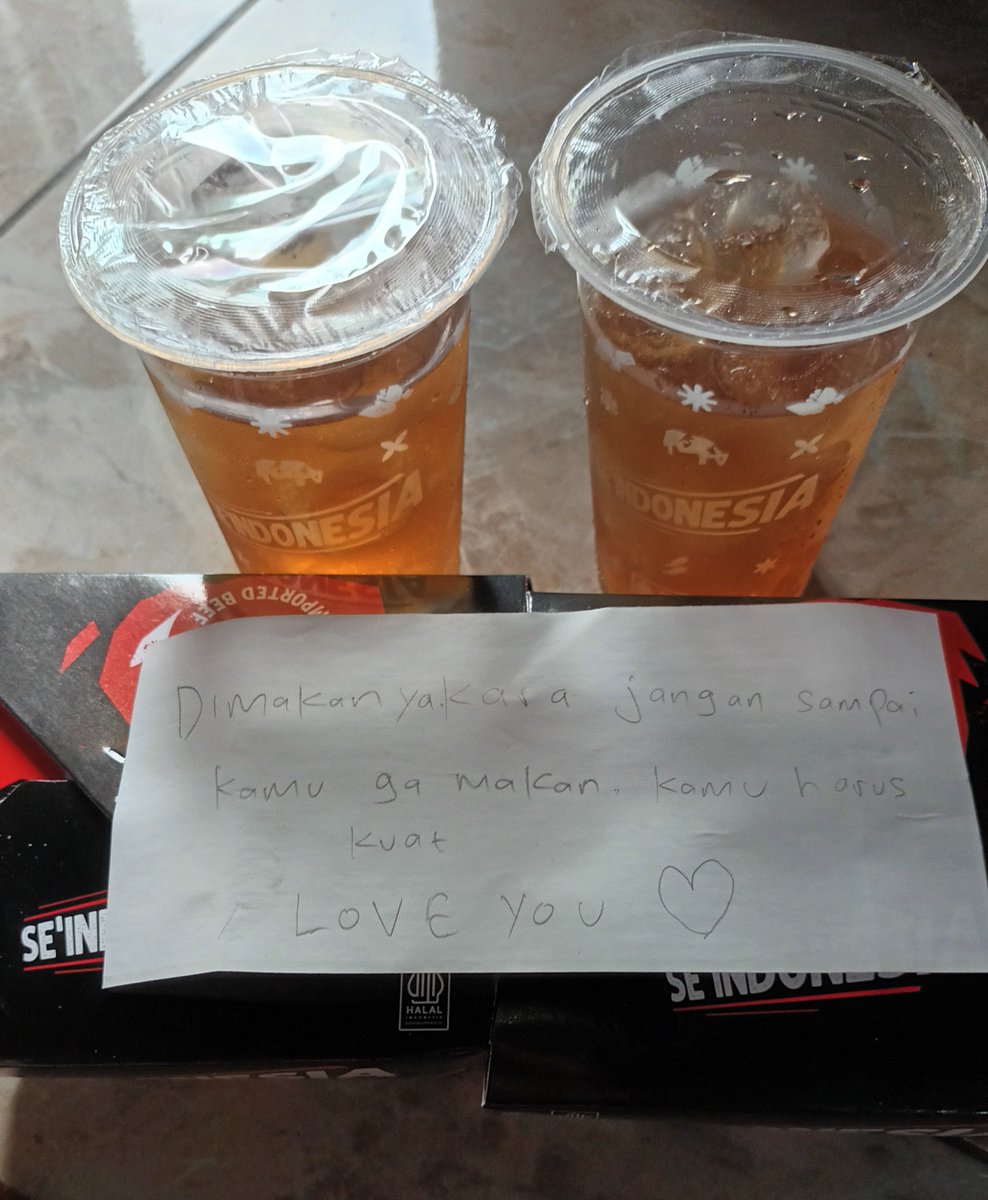 INDONESIA
INDONESIA
IMPORTED BEEF
Dimakan ya.kara jangan sampai
kamu ga makan. kamu harus
kuat
LOVE YOU
SE'IN
SE'INDONESI
HALAL
INDONESIA